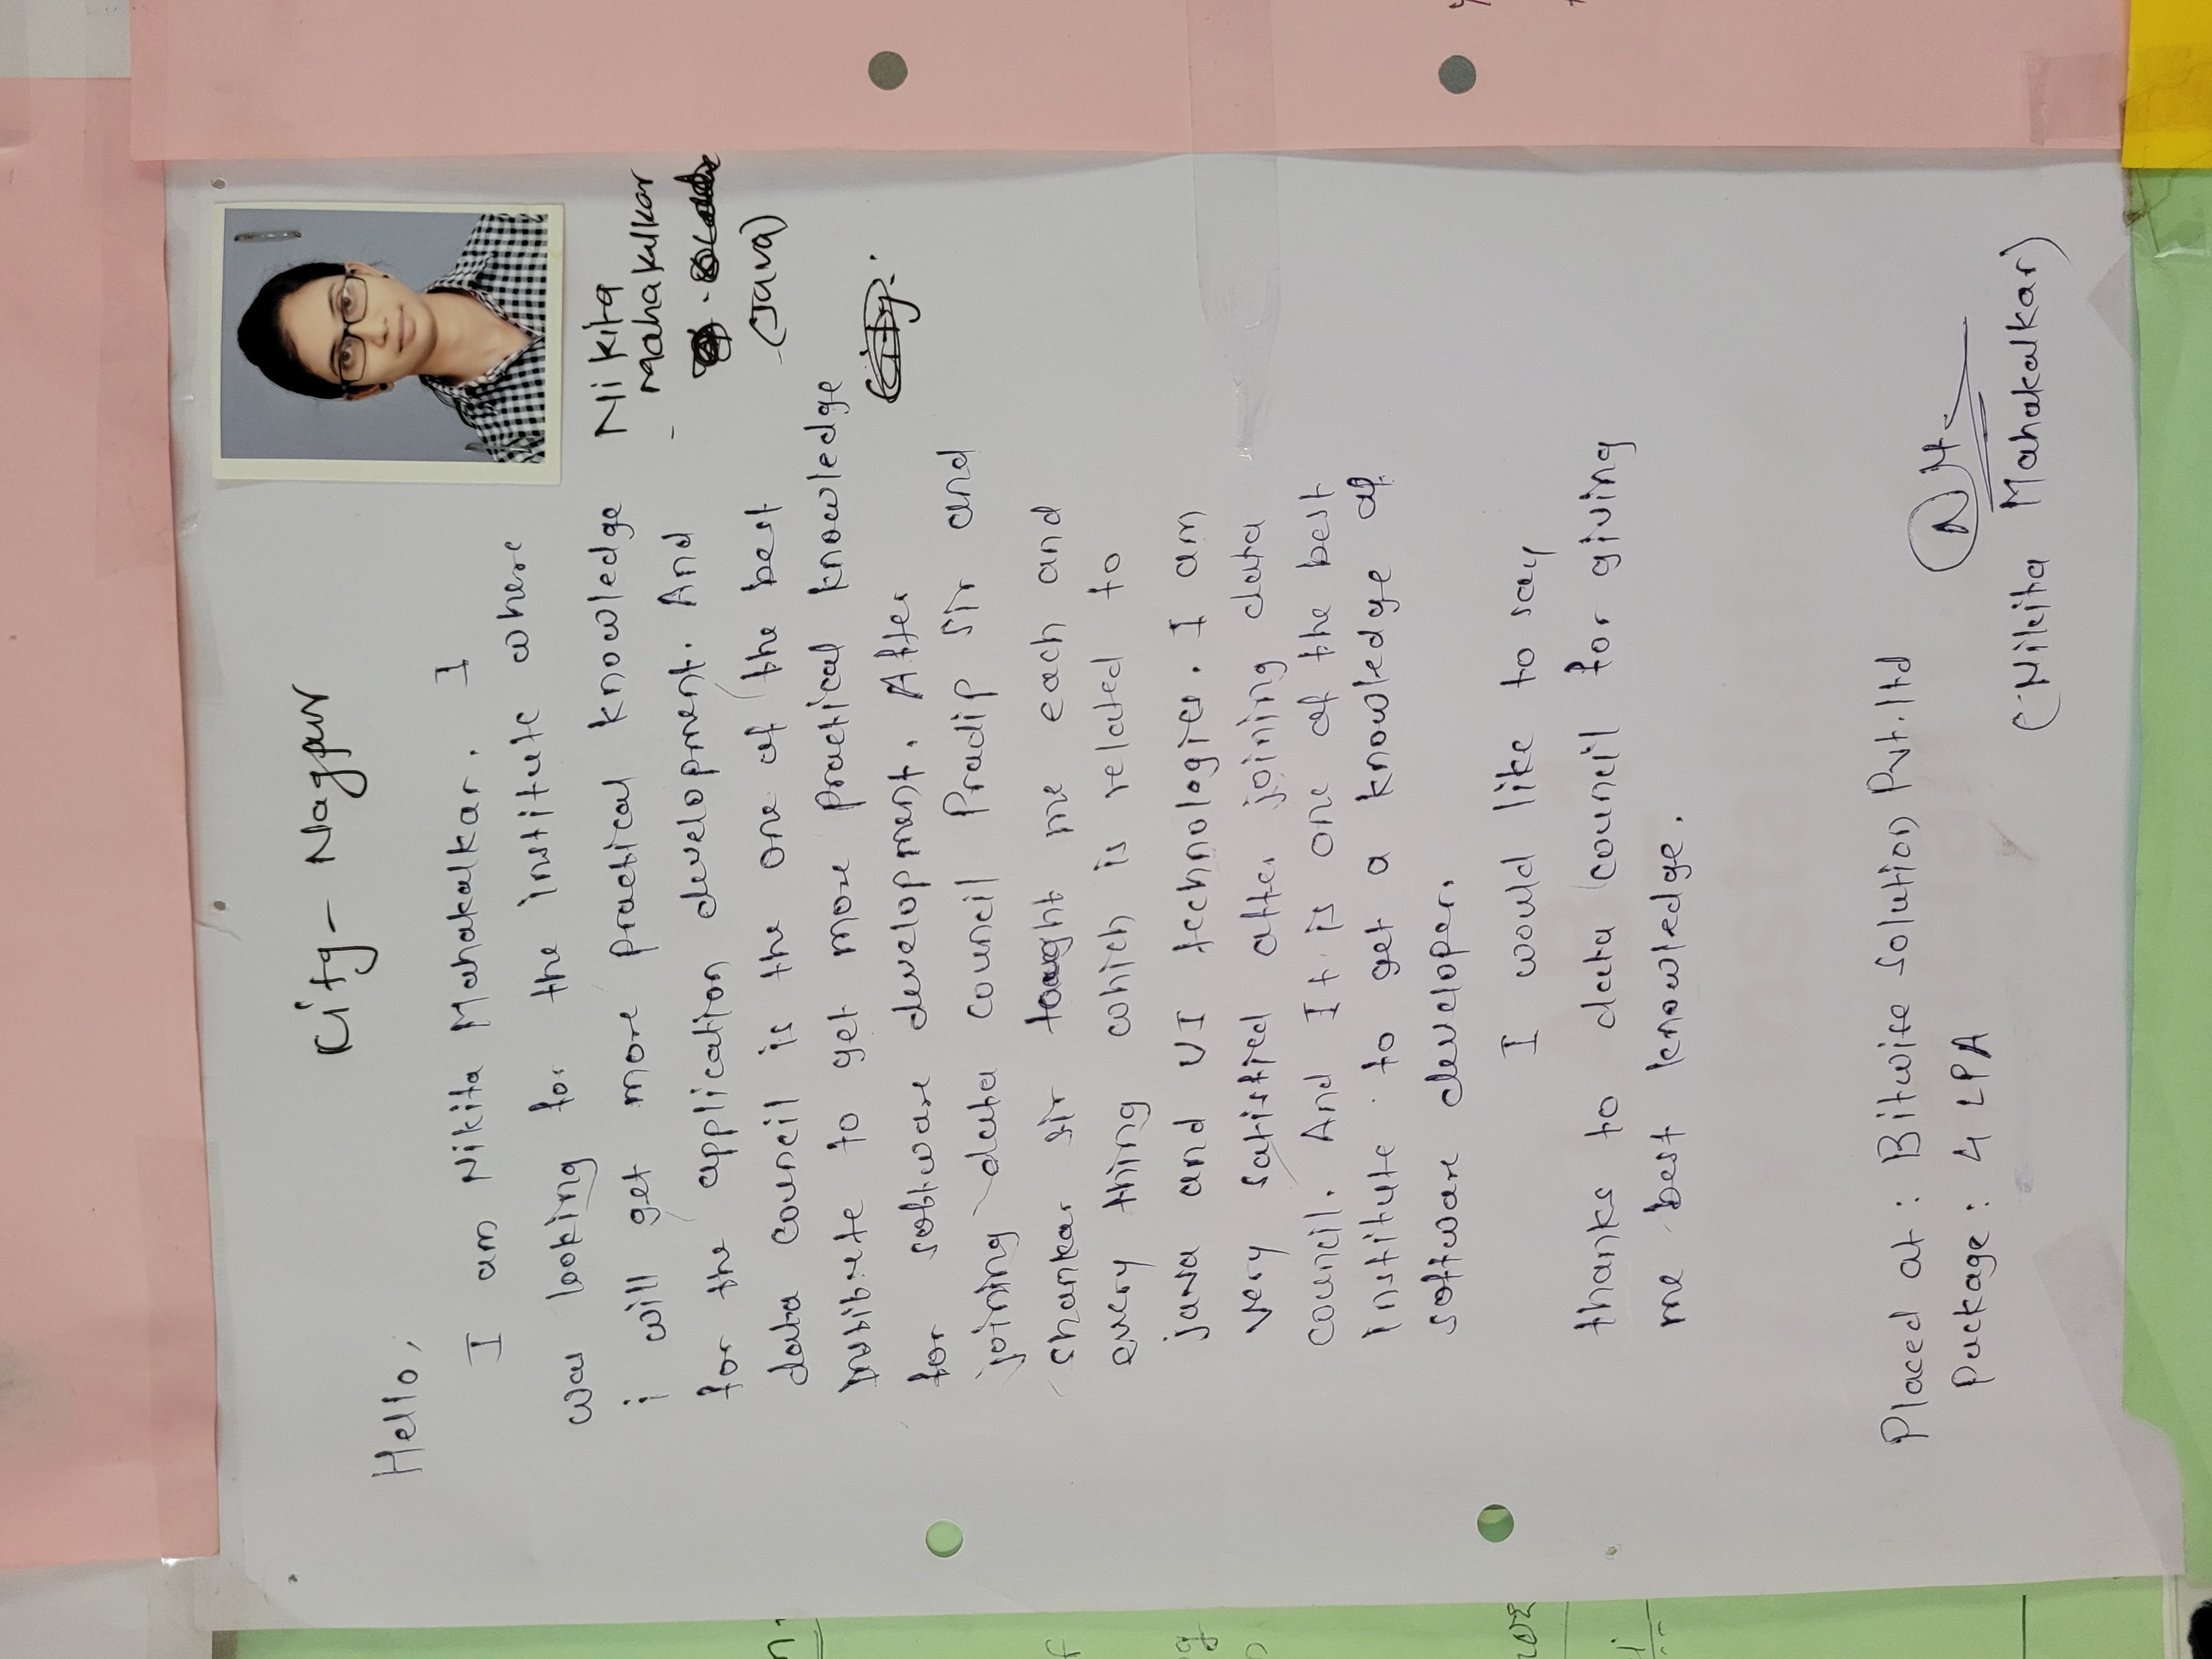 City - Nagpur
Hello,
I am Nikita Mahakalkar. I
was looking for the institute where
i will get more practical knowledge
for the application development. And
data council is the one of the best
institute to get more practical knowledge
for software development. After
joining data council Pradip sir and
Shankar sir taught me each and
every thing which is related to
java and UI technologies. I am
very satisfied after joining data
council. And It is one of the best
institute to get a knowledge of
software developer.
I would like to say
thanks to data council for giving
me best knowledge.
Nikita
Mahakalkar
(Java)
Placed at : Bitwise Solution Pvt.ltd
Package : 4 LPA
(Nikita Mahakalkar)